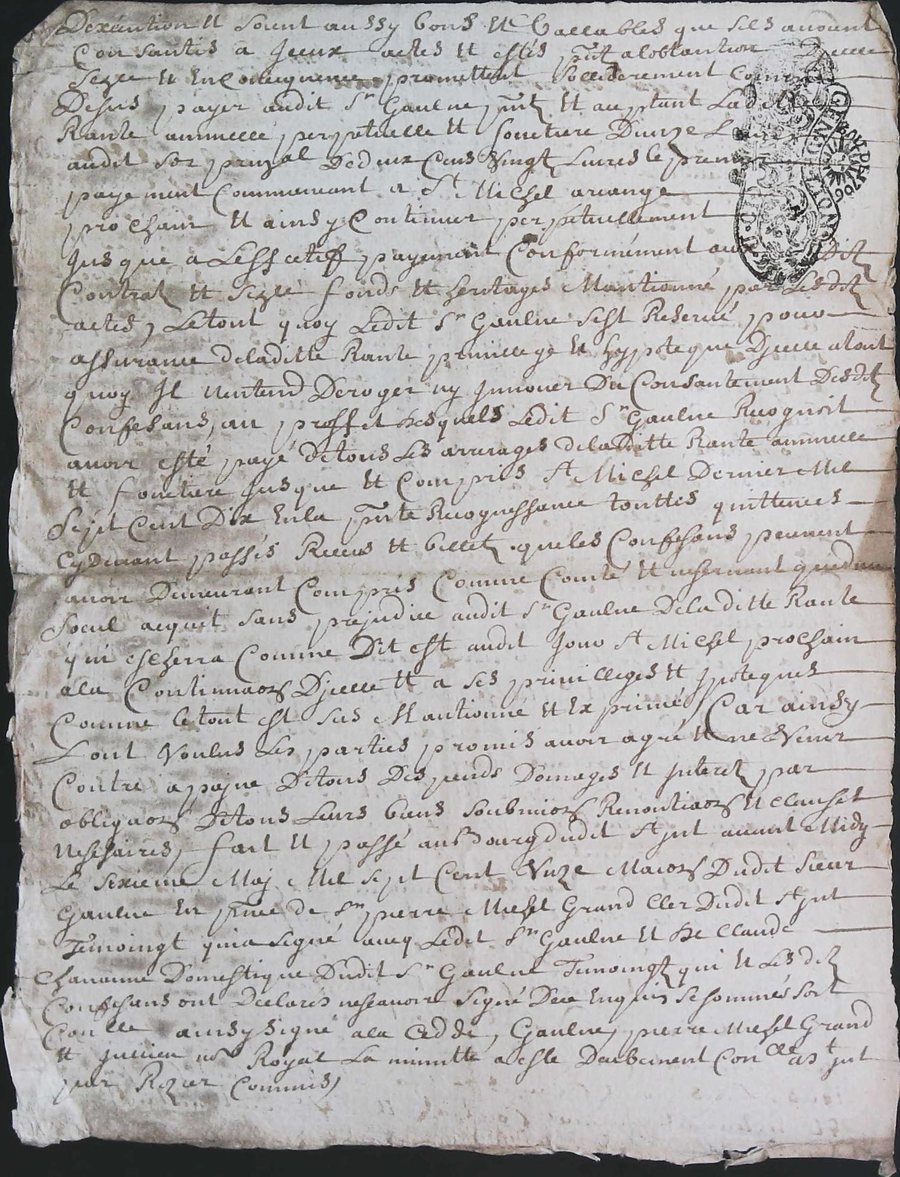 Dexecution et soient aussy bons et Vallables que sils avoient
Consantis a Jceux actes et estes a lobtantion Dicelle
et En Consequence promettent Sollidérement Comme
Desus payer audit Sr Gaulne pnt et aceptant La
Rante annuelle perpetuelle et fonciere Dunze
audit Sor prinzal Dedeux Cens Vingt Livres le premier
payement Commencant a St Michel arcange
prochain et ainsy Continuer perpetuellement
Jusque a Lessectif payement Conformément au dit
Contrat et fonds et heritages Mantionné par Lesdit
actes, Letout quoy Ledit Sr Gaulne sest Reservé pour
assurance deladitte Rante privillege et hypoteque Djcelle
quoy Jl nentend Deroger ny Jnnover Du Consantement Desdit
Confesans, au proffit desquels Ledit Sr Gaulne Recognoit
avoir esté payé De tous Les arrerages deladitte Rante annuelle
et fonciere Jusque et Compris St Michel Dernier Mil
Sept Cent Dix En la pnte Recognessance touttes quittences
Cydevant passés Receus et billet que les Confesans peuvent
avoir Demeurant Compris Comme Conté et neservant quedun
Seul acquit Sans prejudice audit Sr Gaulne Deladitte Rante
qui escherra Comme Dit est audit Jour St Michel prochain
ala Continuaon Djcelle et a ses privilleges et ypoteques
Comme letout est sus Mantionné et Exprimé, Car ainsy
Lont Voulus Les parties promis avoir agré et ne Venir
Contre apeine De tous Despends Domages et Jnteret par
obligaon De tous Leurs biens Soubmions Renontiaons et Clauses
Nessesaires, fait et passé au Bourg dudit St Just avant Midy
Le Sixieme May Mil Sept Cent Unze Maison Dudit Sieur
Gaulne En pnce de Sr pierre Michel Grand Cler Dudit St Just
Temoingt qui a Signé avec Ledit Sr Gaulne et De Claude
Chanaine Domestique Dudit Sr Gaulne Temoingt qui et Lesdit
Confesans ont Declarés nescavoir Signé De ce Enquis Se sommés Sont
Conlle ainsy Signé a la Cedde, Gaulne, pierre Michel Grand
et nore Royal La minutte a este Duement Conlle a St Just
par Rozier Commis,